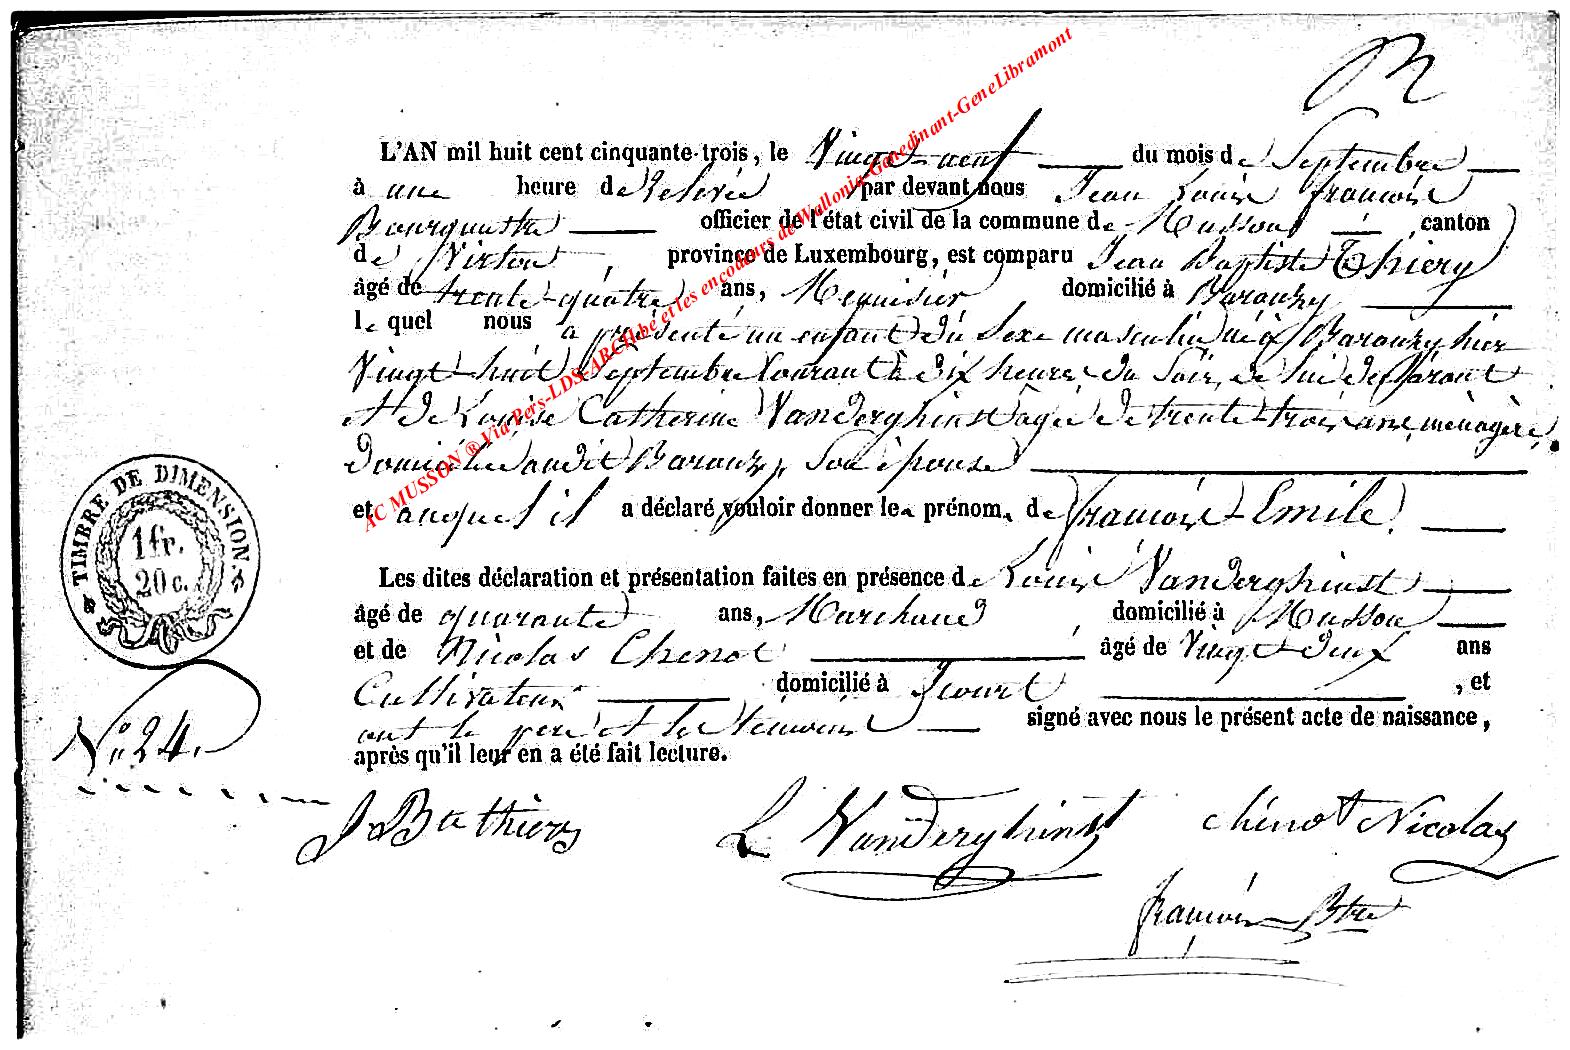 L'AN mil huit cent cinquante-trois, le Vingt-neuf du mois de Septembre
à une heure de Relevée par devant nous Jean Louis françois
officier de l'état civil de la commune de Musson, canton
de Virton, province de Luxembourg, est comparu Jean Baptiste Thiery
âgé de trente-quatre ans, Menuisier, domicilié à Baranzy
le quel nous a présenté un enfant du Sexe masculin né à Baranzy hier
Vingt-huit Septembre Courant à dix heures du Soir, de lui déclarant
et de Louise Catherine Vanderghinst agée de trente-trois ans, ménagère,
domiciliée audit Baranzy, Son épouse
et auquel il a déclaré vouloir donner les prénoms de françois-Emile.
Les dites déclaration et présentation faites en présence de Louis Vanderghinst
âgé de quarante ans, Marchand, domicilié à Musson
et de Nicolas Chenot âgé de Vingt-deux ans
Cultivateur domicilié à , et
ont le père et les témoins signé avec nous le présent acte de naissance,
après qu'il leur en a été fait lecture.
TIMBRE DE DIMENSION.
1 fr.
20 c.
No 24.
J Bte thiery
L Vanderghinst
chénot Nicolas
françois Btre
AC MUSSON ® Via Pers-LDS-ARCH.be et les encodeurs de Wallonia-Genedinant-GeneLibramont